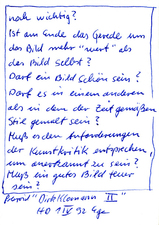 noch wichtig?
Ist am Ende das Gerede um
das Bild mehr "wert" als
das Bild selbst?
Darf ein Bild schön sein?
Darf es in einem anderen
als in dem der Zeit gemäßen
Stil gemalt sein?
Muß es den Anforderungen
der Kunstkritik entsprechen,
um anerkannt zu sein?
Muß ein gutes Bild teuer
sein?
Bernd "Dirk Klomann II"
HD 1 IV 92